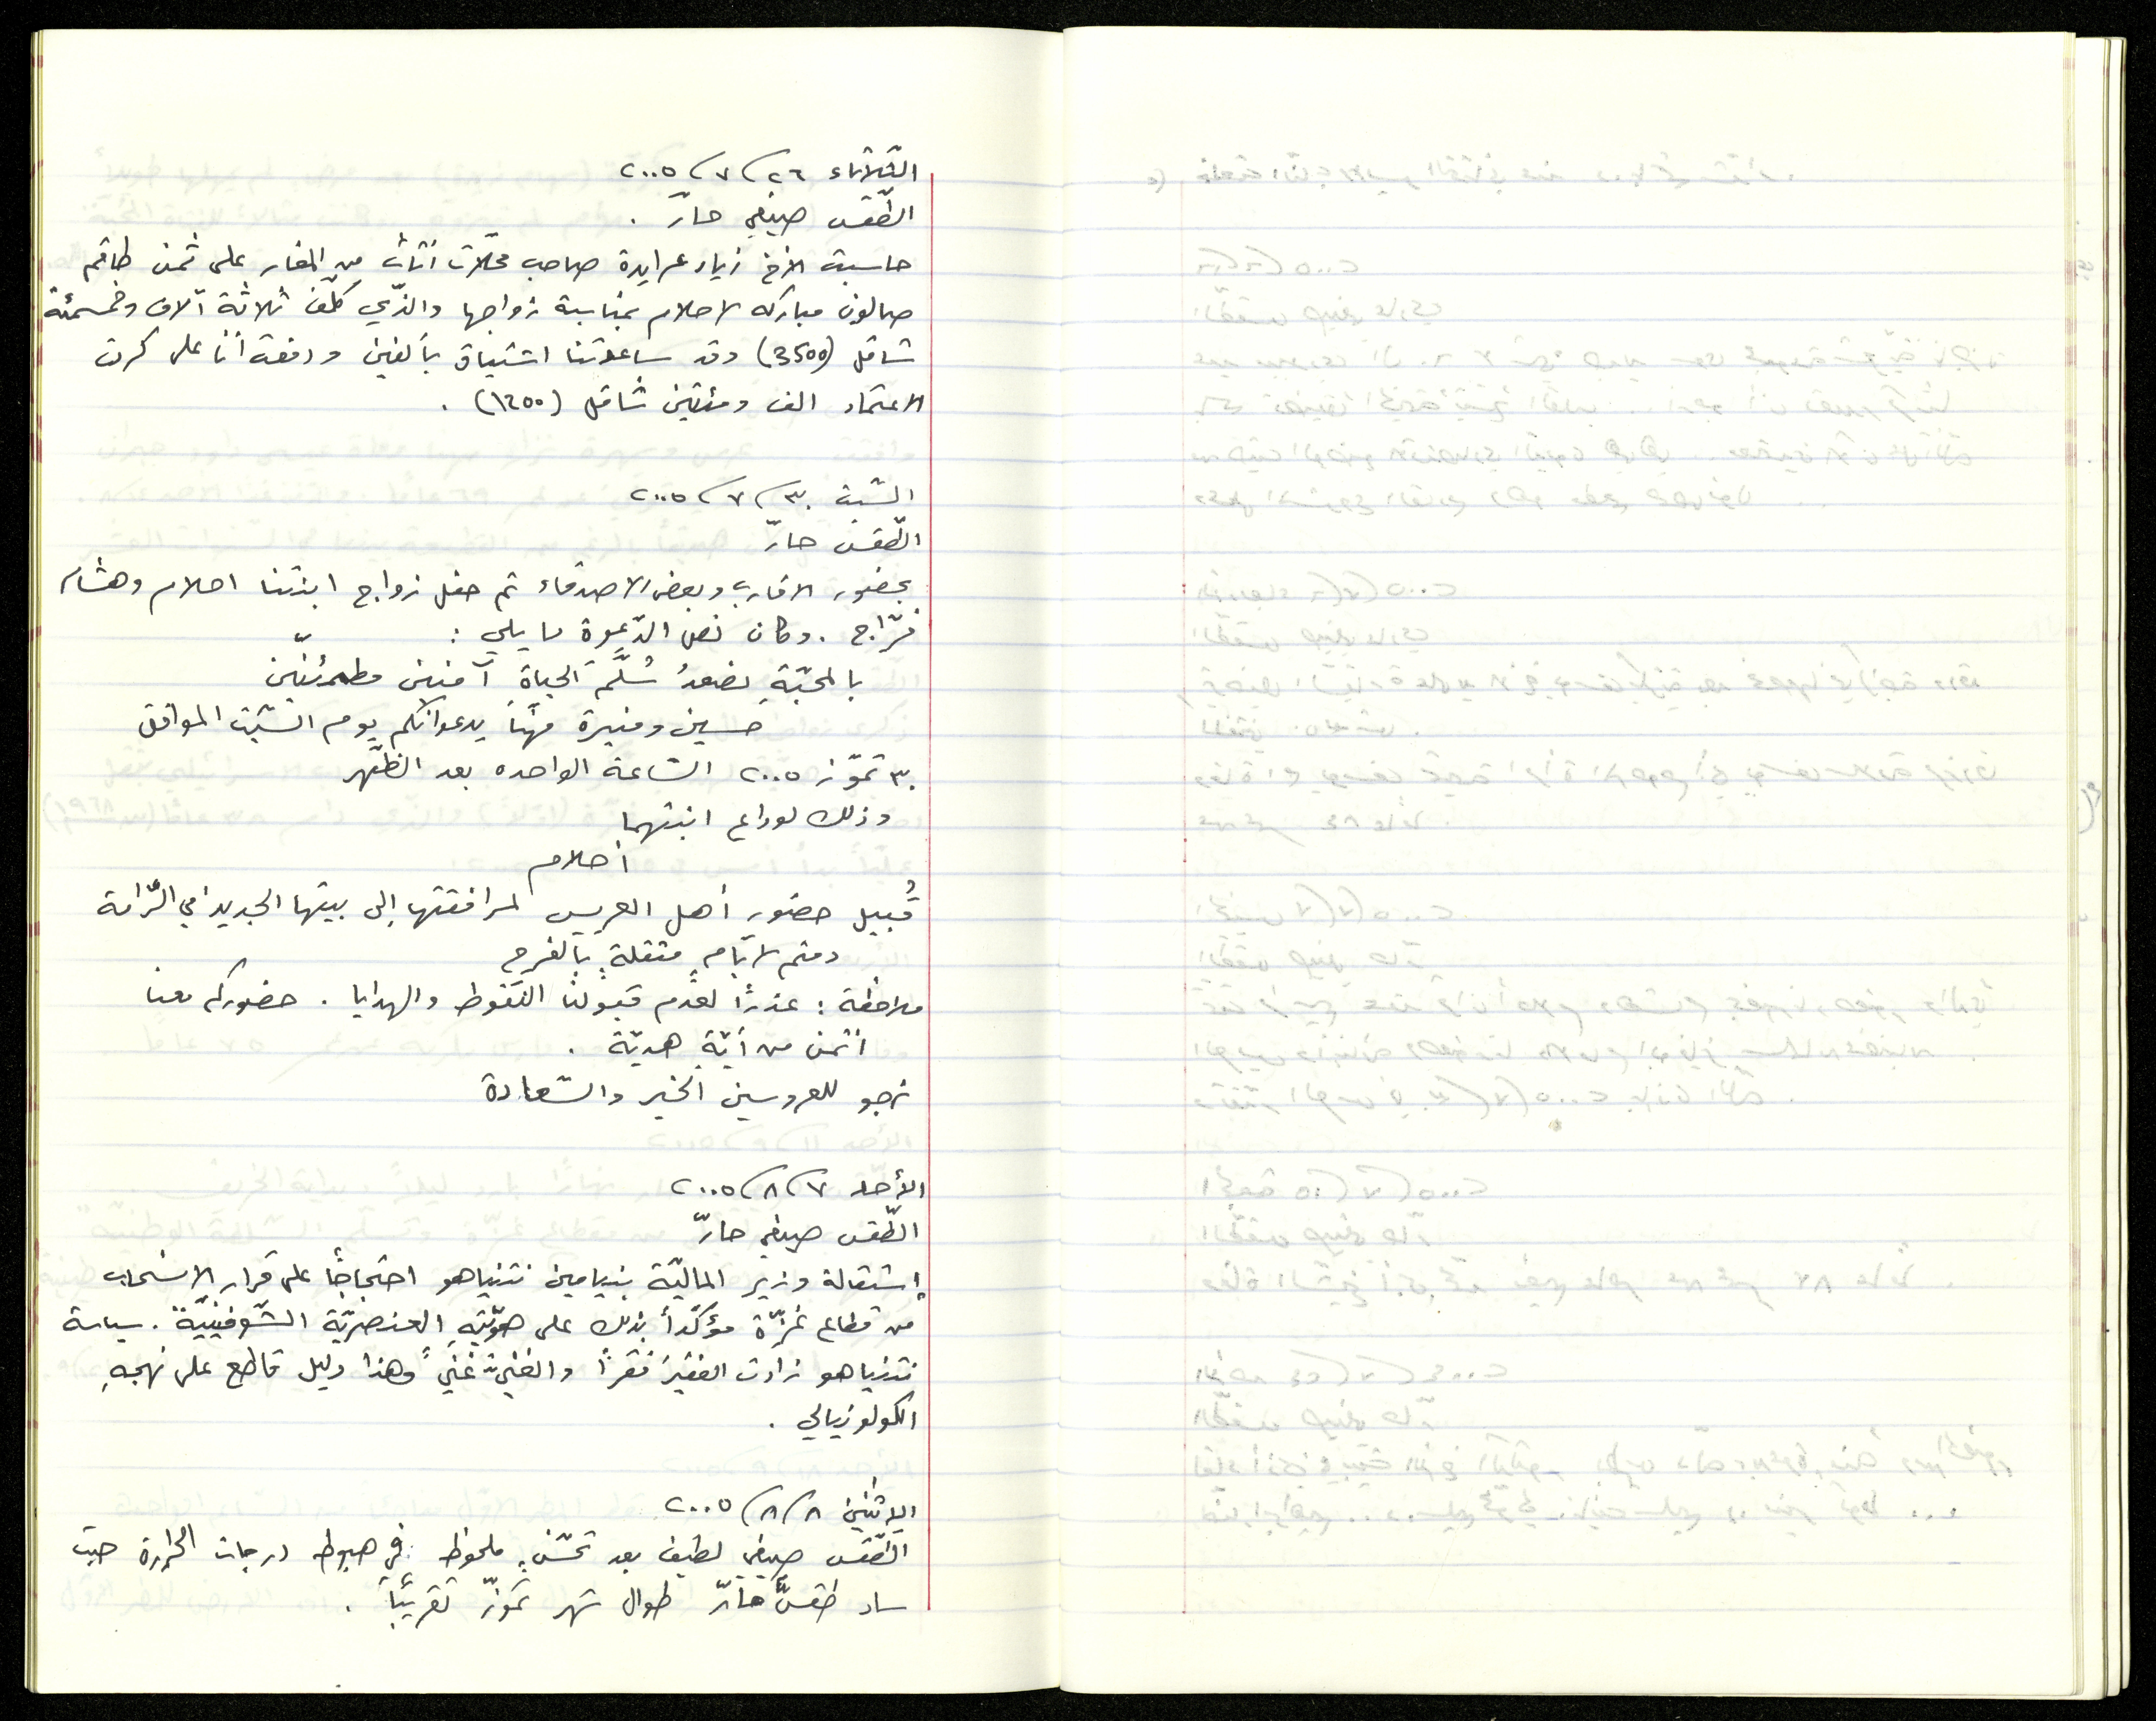 الثّلاثاء ٢٦/٧/٢٠٠٥
الطّقس صيفي حارّ .
حاسبت الأخ زياد عرايدة صاحب محلّات أثاث من المغار على ثمن طاقم
صالون مباركه لاحلام بمناسبة زواجها والذّي كلّف ثلاثة آلاف وخمسمئة
شاقل (3500) وقد ساعدتنا اشتياق بألفين ودفعت أنا على كرت
الاعتماد الف ومئتين شاقل (١٢٠٠) .
السّبت ٣٠/٧/٢٠٠٥
الطّقس حارّ
بحضور الاقارب وبعض الاصدقاء تم حفل زواج ابنتنا احلام وهشام
فرّاج . وكان نص الدّعوة ما يلي :
بالمحبّةِ نصعدُ سُلَّمَ الحياة آمنين مطمئنّين
حسين ومنيرة مهنّا يدعوانكم يوم السّبت الموافق
٣٠ تمّوز ٢٠٠٥ السّاعة الواحده بعد الظّهر
وذلك لوداع ابنتهما
أحلام
قُبيل حضور أهل العريس لمرافقتها إلى بيتها الجديد في الرّامة
دمتم لأيّامٍ مثقلةٍ بالفرح
ملاحظة : عذرًا لعدم قبولنا النّقوط والهدايا . حضوركم معنا
أثمن من أيّة هديّة .
نرجو للعروسين الخير والسّعادة
الأحد ٧/٨/٢٠٠٥
الطّقس صيفي حارّ
إستقالة وزير الماليّة بنيامين نتنياهو احتجاجًا على قرار الإنسحاب
من قطاع غزّة مؤكّدًا بذلك على هويّتهِ العنصريّة الشّوفينيّة . سياسة
نتنياهو زادت الفقيرَ فقرًا والغنيّ غنىً وهذا دليل قاطع على نهجهِ
الكولونيالي .
الإثنين ٨/٨/٢٠٠٥
الطّقس صيفي لطيف بعد تحسّنٍ ملحوظ في هبوط درجات الحرارة حيث
ساد طقسٌ حارّ طوال شهر تمّوز تقريبًا .